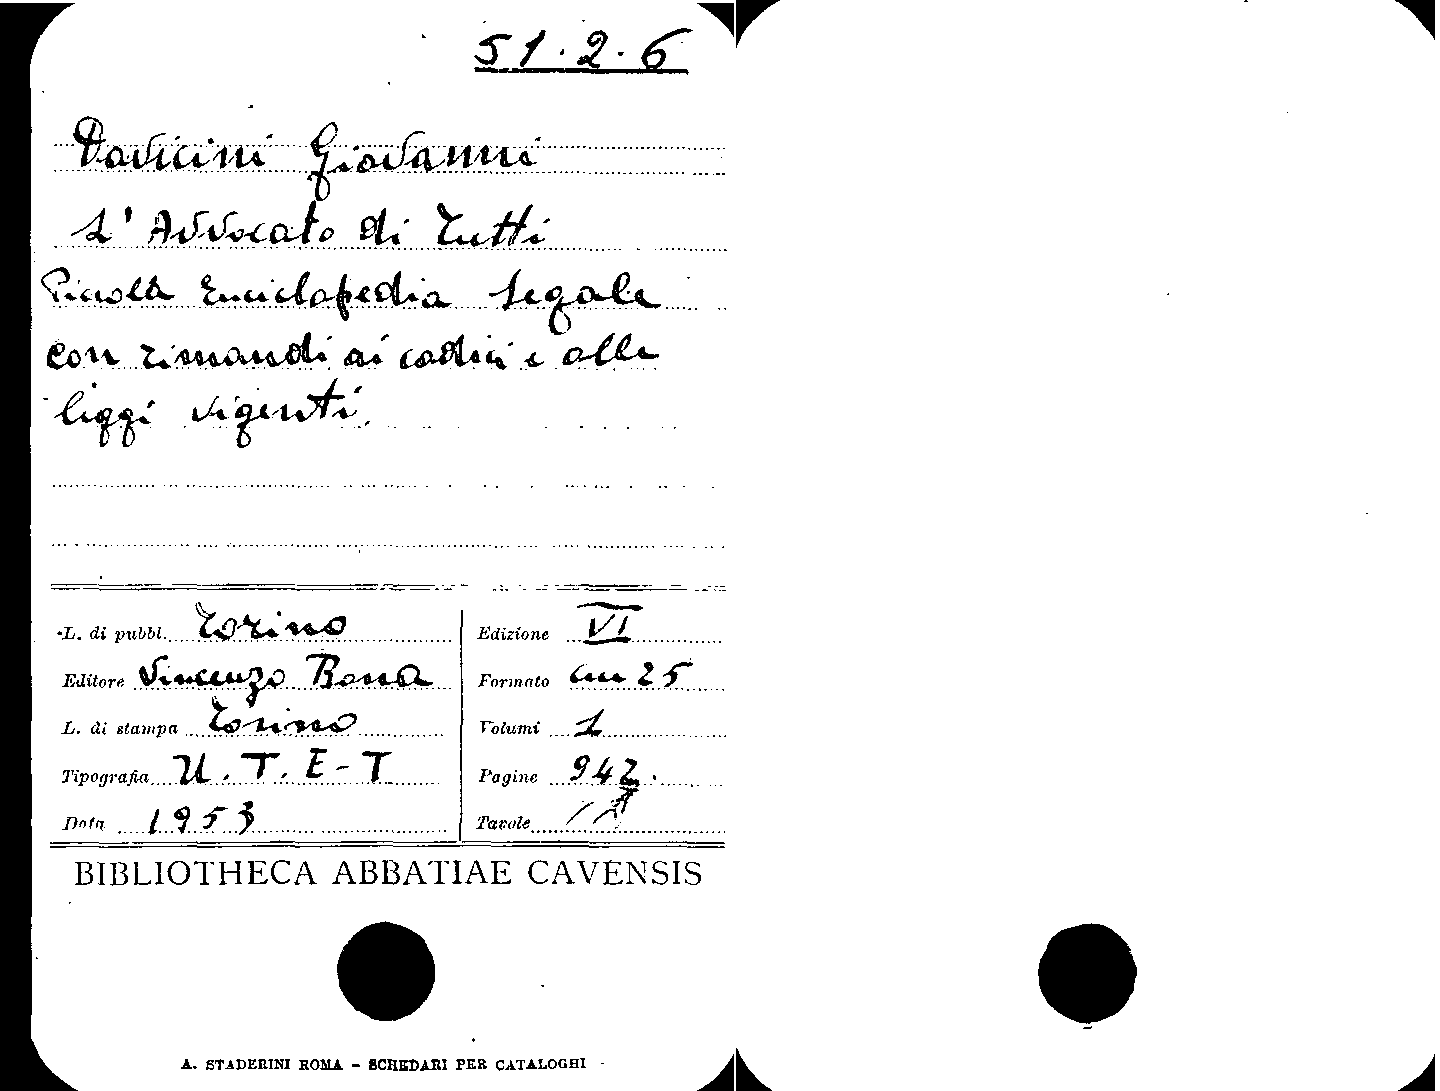 51.2.6
Davicini Giovanni
L'Avvocato di Tutti
Piccola Enciclopedia Legale
con rimandi ai codici e alle
leggi vigenti.
L. di pubbl. Torino
Edizione VI
Editore Vincenzo Bona
Formato cm 25
L. di stampa Torino
Volumi 1
Tipografia U.T.E-T
Pagine 942.
Data 1953
Tavole //
BIBLIOTHECA ABBATIAE CAVENSIS
A. STADERINI ROMA - SCHEDARI PER CATALOGHI